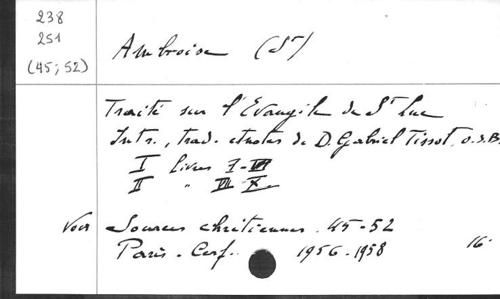 238
251
(45; 52)
Ambroise (St)
Traité sur l'Evangile de St Luc
Intr., trad. et notes de D. Gabriel Tissot, O.S.B.
I livres I-VI
II " VII-X
Voir Sources chrétiennes. 45-52
Paris. Cerf. 1956-1958 16°